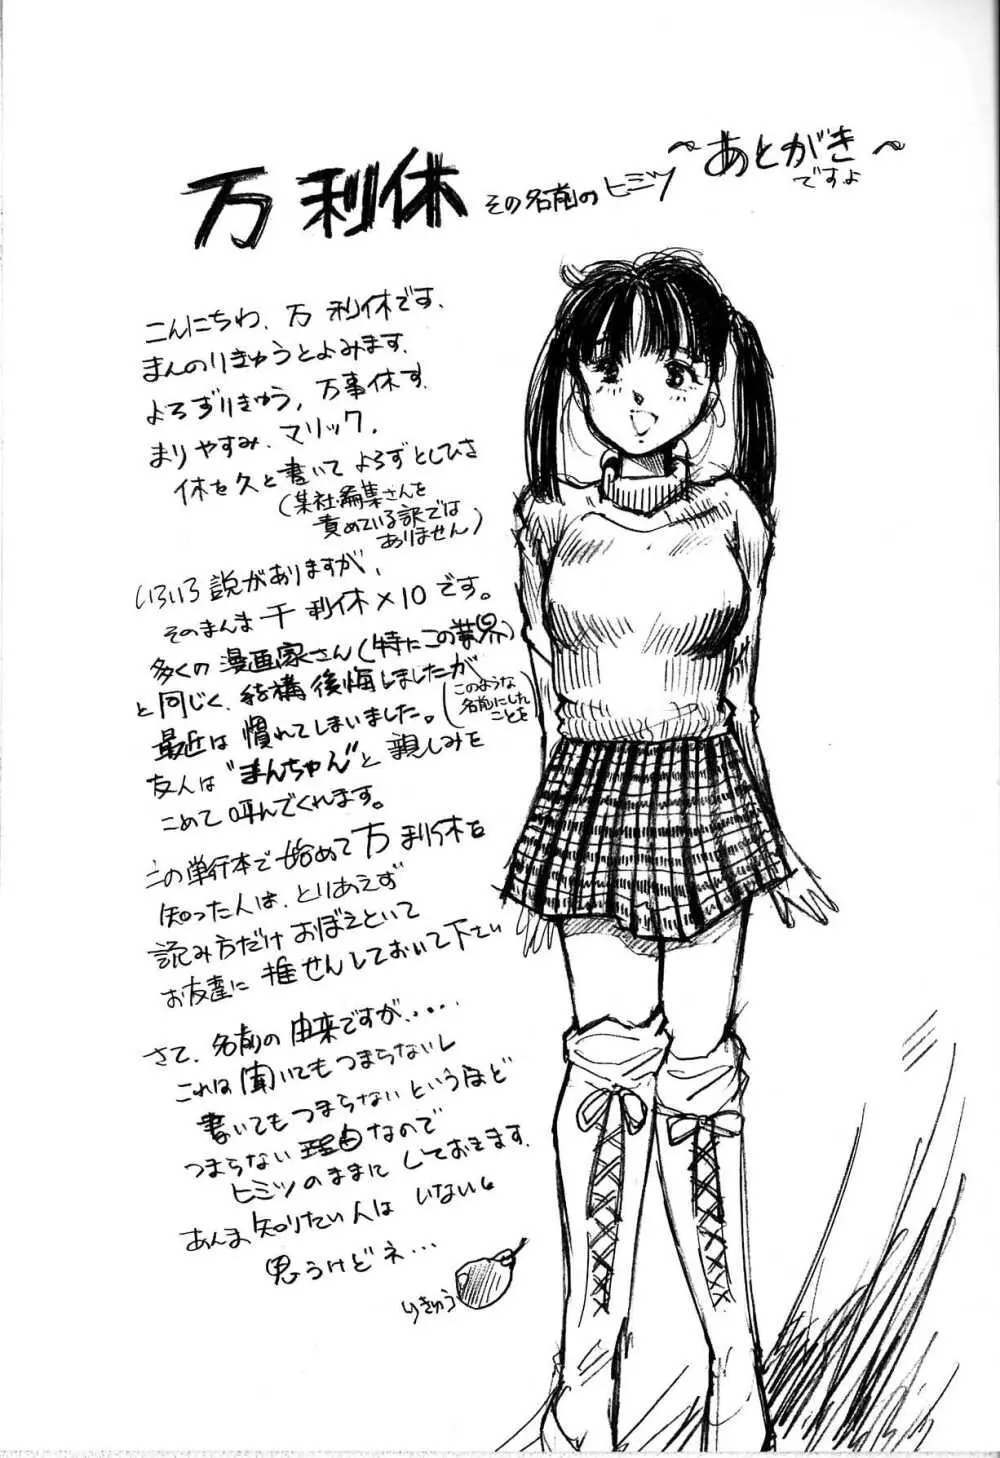 ～あとがき～
ですよ
万利休 その名前のヒミツ
こんにちわ、万利休です。
まんのりきゅうとよみます。
よろずりきゅう、万事休す
まりやすみ、マリック、
休を久と書いてよろずとしひさ
(某社編集さんを
責めている訳では
ありません)
いろいろ説がありますが、
そのまんま千利休×10です。
多くの漫画家さん(特にこの業界)
と同じく、結構後悔しましたが
(このような
名前にした
ことを)
最近は慣れてしまいました。
友人は"まんちゃん"と親しみを
こめて呼んでくれます。
この単行本で始めて万利休を
知った人は、とりあえず
読み方だけおぼえといて
お友達に推せんしておいて下さい
さて、名前の由来ですが、・・・・
これは聞いてもつまらないし
書いてもつまらないというほど
つまらない理由なので
ヒミツのままにしておきます。
あんま知りたい人はいないと
思うけどネ・・・
りきゅう